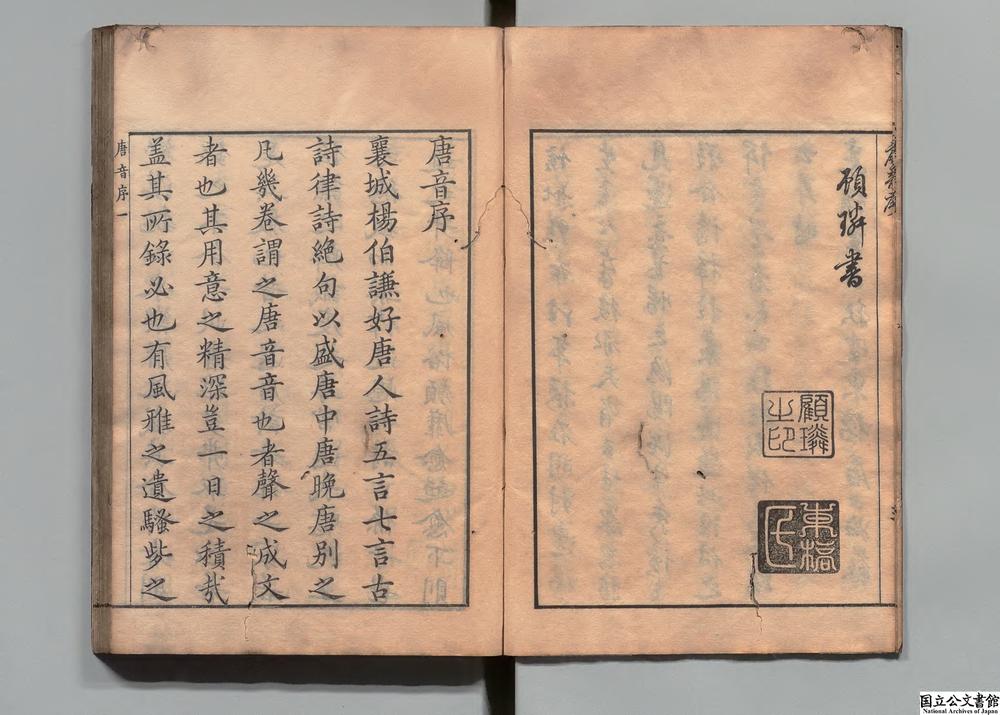 顧璘書
顧璘
之印
東橋
氏
唐音序
襄城楊伯謙好唐人詩五言七言古
詩律詩絶句以盛唐中唐晚唐别之
凡幾卷謂之唐音音也者聲之成文
者也其用意之精深豈一日之積㢤
盖其所錄必也有風雅之遺騷些之
唐音序一
国立公文書館
National Archives of Japan